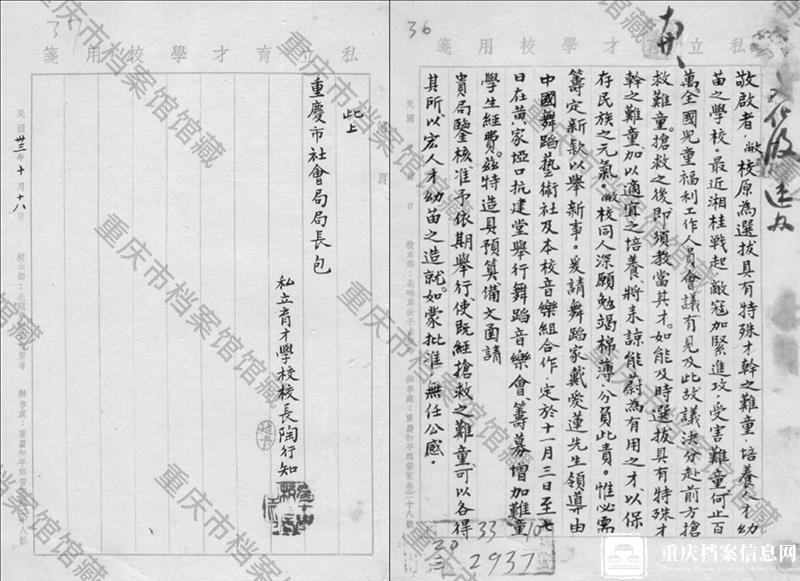 36
私立育才學校用箋
敬啟者 敝校原為選拔具有特殊才幹之難童，培養人才幼
苗之學校。最近湘桂戰起，敵寇加緊進攻，受害難童何止百
萬，全國兒童福利工作人員會議有見及此，故議決分赴前方搶
救難童。搶救之後即須教當其才。如能及時選拔具有特殊才
幹之難童加以適宜之培養，將來諒能蔚為有用之才，以保
存民族之元氣。敝校同人深願勉竭棉薄，分負此責。惟必需
籌定新款以舉新事。爰請舞蹈家戴愛蓮先生領導，由
中國舞蹈藝術社及本校音樂組合作，定於十一月三日至七
日在黃家埡口抗建堂舉行舞蹈音樂會，籌募增加難童
學生經費。茲特造具預算備文函請
貴局鑒核准予依期舉行，使既經搶救之難童可以各得
其所，以宏人才幼苗之造就。如蒙批准，無任公感。
33
10
20
2937
私立育才學校用箋
此上
重慶市社會局局長包
私立育才學校校長陶行知
民國卅三年十月十八日
重庆市档案馆馆藏
重庆档案信息网